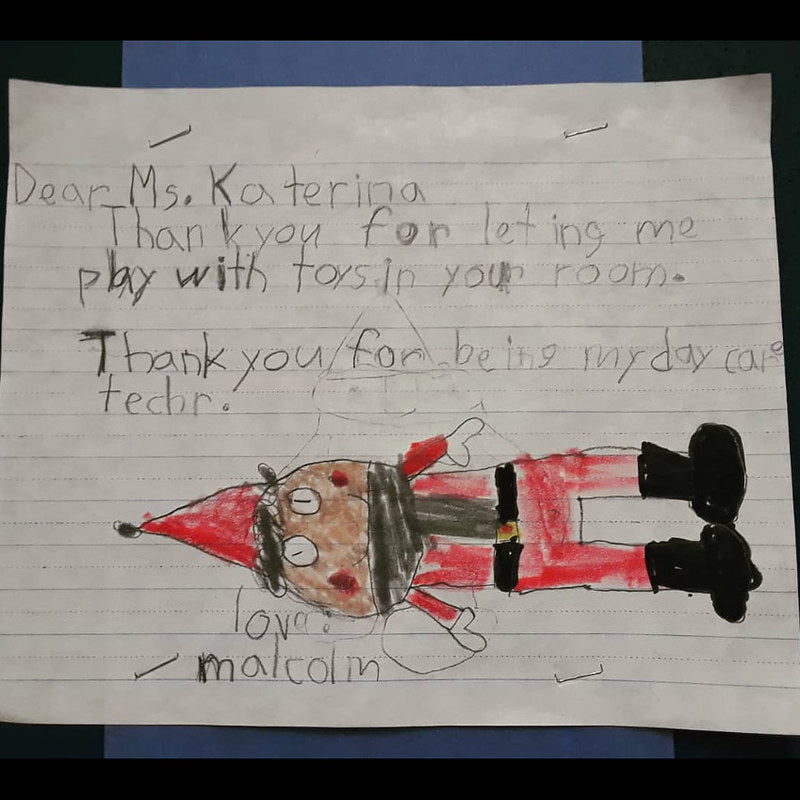 Dear Ms. Katerina
Thank you for leting me
play with toys in your room.
Thank you for being my day care
techr.
love:
malcolm